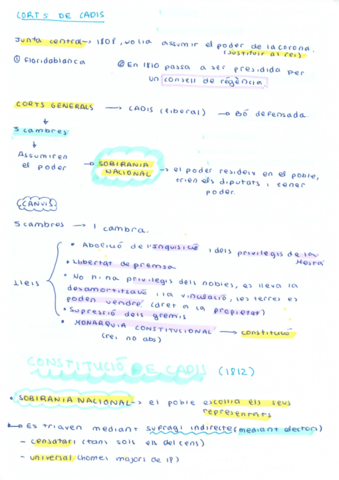 CORTS DE CADIS
Junta central → 1808, volia assumir el poder de la corona.
(substituir al rei)
① Floridablanca ② En 1810 passa a ser presidida per
un consell de regència
CORTS GENERALS → CADIS (liberal) → Bó defensada
3 cambres
Assumiren el poder → SOBIRANIA NACIONAL → el poder resideix en el poble,
trien els diputats i tener
poder.
CANVIS
3 cambres → 1 cambra.
Lleis
• Abolició de l'Inquisició i dels privilegis de la
Mesta
• Llibertat de premsa
• No n'hi ha privilegis dels nobles, es lleva la
desamortització i la vinculació, les terres es
poden vendre (dret a la propietat)
• Supressió dels gremis
• MONARQUIA CONSTITUCIONAL → constitució
(rei no abs)
CONSTITUCIÓ DE CADIS (1812)
• SOBIRANIA NACIONAL → el poble escollia els seus
representants
↳ Es triaven mediant sufragi indirecte (mediant electors)
- censatari (tans sols els del cens)
- universal (homes majors de